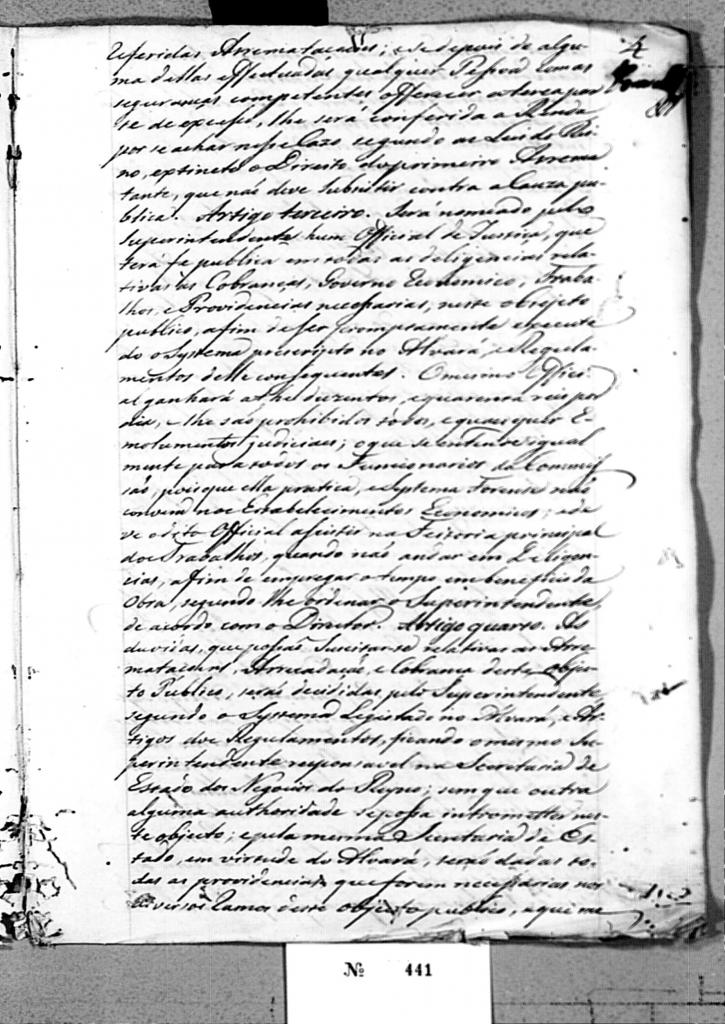 4
referidas Arremataçaões; e se depois de algu-
ma dellas effectuadas qualquer Pessoa com as
seguranças competentes offerecer a terça par
te de excesso, lhe será conferida a Renda
por se achar nesse Cazo, segundo as Leis do Rei-
no, extincto o Direito do primeiro Arrema
tante, que não deve subsistir contra a Cauza pu-
blica. Artigo terceiro. Será nomeado pelo
Superintendente hum Official de Justiça, que
terá fe publica em todas as deligencias rela-
tivas ás Cobranças, Governo Economico, Traba-
lhos, e Providencias necessarias, neste objecto
publico, afim de ser promptamente executa
do o Systema prescripto no Alvará, e Regula-
mentos delle consequentes. O mesmo Offici-
al ganhará athe duzentos, e quarenta reis por
dia, e lhe são prohibidos todos, e quaesquer E-
molumentos judiciaes; o que se entende igual
mente para todos os Funccionarios da Commis
são, pois que ella pratica, e Systema Forense não
convem nos Estabelecimentos Economicos; e de
ve o dito Official assistir na Feitoria principal
dos Trabalhos, quando não andar em Deligen-
cias, afim de empregar o tempo em beneficio da
Obra, segundo lhe ordenar o Superintendente,
de acordo com o Director. Artigo quarto. As
duvidas, que possão Suscitar-se relativas as Arre-
mataçoens, Arrecadação, e Cobrança deste objec-
to Publico, serão decididas pelo Superintendente
segundo o Systema Legislado no Alvará, e Ar-
tigos dos Regulamentos, ficando o mesmo Su-
perintendente responsavel na Secretaria de
Estado dos Negocios do Reyno; sem que outra
alguma authoridade se possa intrometter nes-
te objecto; e pela mesma Secretaria de Es-
tado, em virtude do Alvará, serão dadas to-
das as providencias, que forem necessarias nos
diversos Ramos deste objecto publico, e que me
Nº 441